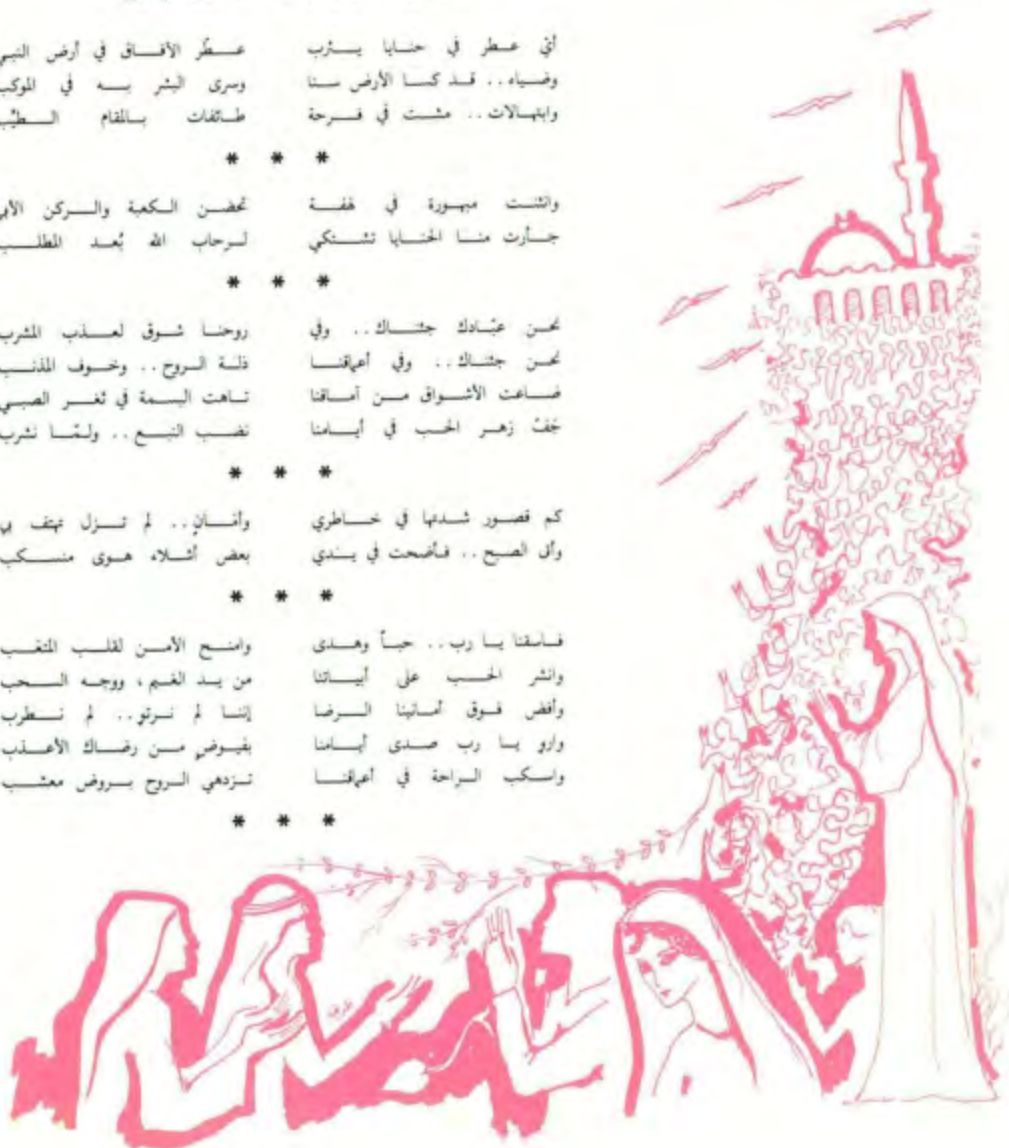 أيّ عطر في حنايا يثرب عطّر الآفاق في أرض النبي
وضياء.. قد كسا الأرض سنا وسرى البشر به في الموكب
وابتهالات.. مشت في فرحة طائفات بالمقام الطيّب
* * *
وانثنت مبهورة في لهفة تحضن الكعبة والركن الأبي
جأرت منا الحنايا تشتكي لرحاب الله بُعد المطلب
* * *
نحن عبّادك جئناك.. وفي روحنا شوق لعذب المشرب
نحن جئناك.. وفي أعماقنا ذلة الروح.. وخوف المذنب
ضاعت الأشواق من آماقنا تاهت البسمة في ثغر الصبي
جَفّ زهر الحب في أيامنا نضب النبع.. ولمّا نشرب
* * *
كم قصور شدتها في خاطري وأمانٍ.. لم تزل تهتف بي
وأتى الصبح.. فأضحت في يدي بعض أشلاء هوى منسكب
* * *
فاسقنا يا رب.. حباً وهدى وامنح الأمن لقلب المتعب
وانشر الحب على أبياتنا من يد الغيم، ووجه السحب
وأفض فوق أمانينا الرضا إننا لم نرتو.. لم نطرب
وارو يا رب صدى أيامنا بفيوضٍ من رضاك الأعذب
واسكب الراحة في أعماقنا تزدهي الروح بروض معشب
* * *